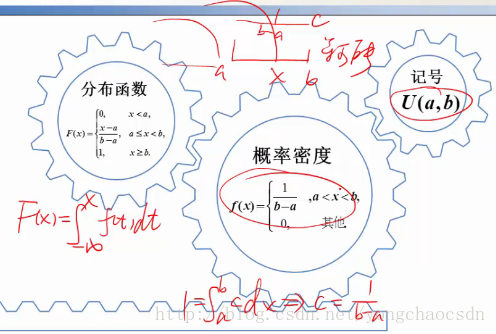 C
b-a
a x b
分布函数
F(x)={0, x<a,
x-a/b-a, a≤x<b,
1, x≥b.
记号
U(a,b)
概率密度
f(x)={1/b-a ,a<x<b,
0, 其他
F(x)=∫_{-∞}^{x} f(t)dt
1=∫_a^b c dx ⇒ c=1/b-a
http://blog.csdn.net/yangchaocsdn